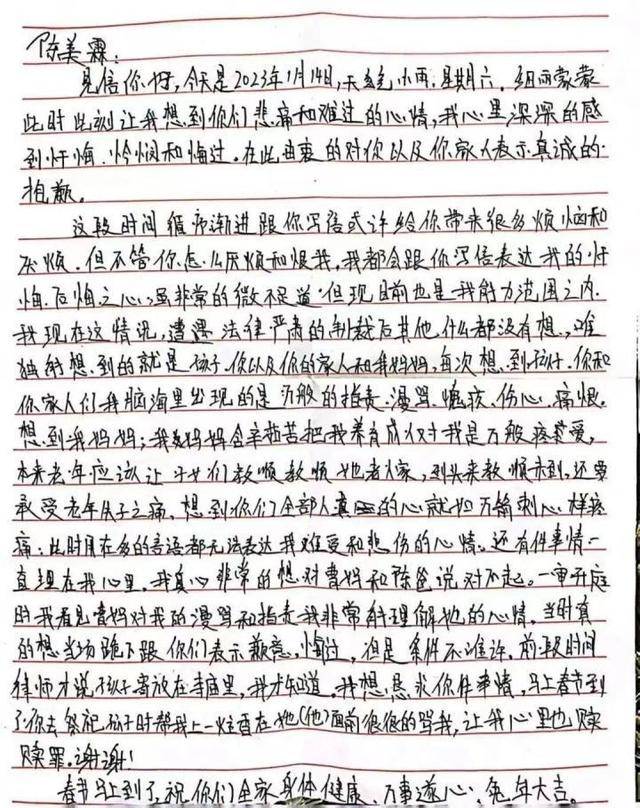 陈美霖：
见信你好，今天是2023年1月14日，天气小雨，星期六，细雨蒙蒙
此时此刻让我想到你们悲痛和难过的心情，我心里深深的感
到忏悔、怜悯和悔过。在此由衷的对你以及你家人表示真诚的
抱歉。
这段时间循序渐进跟你写信或许给你带来很多烦恼和
厌烦．但不管你怎么厌烦和恨我，我都会跟你写信表达我的忏
悔、后悔之心，虽非常的微不足道，但现目前也是我能力范围之内．
我现在这情况，遭遇法律严肃的制裁后其他什么都没有想，唯
独能想到的就是孩子、你以及你的家人和我妈妈，每次想到孩子、你和
你家人们我脑海里出现的是万般的指责、漫骂、愧疚、伤心、痛恨，
想到我妈妈；我妈妈含辛茹苦把我养育成人对我是万般疼爱，
本来老年应该让子女们教顺教顺她老人家，到头来教顺未到，还要
承受老年丧子之痛，想到你们全部人真的心就如万箭刺心样疼
痛；此时用在多的言语都无法表达我难受和悲伤的心情。还有件事情一
直埋在我心里，我真心非常的想对曹妈和陈爸说对不起。一审开庭
时我看见曹妈对我的漫骂和指责我非常能理解她的心情，当时真
的想当场跪下跟你们表示歉意，悔过，但是条件不准许．前段时间
律师才说孩子寄放在寺庙里，我才知道，我想恳求你件事情，马上春节到
了，你去祭祀孩子时帮我上一炷香在她(他)面前很很的骂我，让我心里也赎
赎罪。谢谢！
春节马上到了，祝你们全家身体健康、万事遂心、兔年大吉。